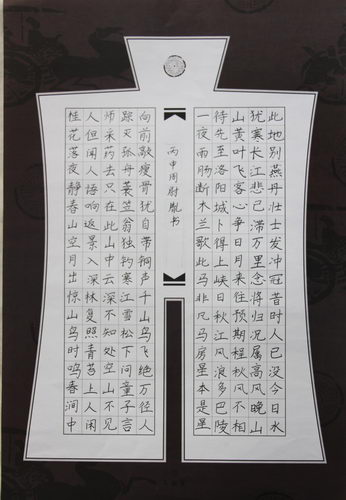 此地别燕丹壮士发冲冠昔时人已没今日水
犹寒长江悲已滞万里念将归况属高风晚山
山黄叶飞客心争日月来往预期程秋风不相
待先至洛阳城卜得上峡日秋江风浪多巴陵
一夜雨肠断木兰歌此马非凡马房星本是星
向前敲瘦骨犹自带铜声千山鸟飞绝万径人
踪灭孤舟蓑笠翁独钓寒江雪松下问童子言
师采药去只在此山中云深不知处空山不见
人但闻人语响返景入深林复照青苔上人闲
桂花落夜静春山空月出惊山鸟时鸣春涧中
丙申周尉胤书